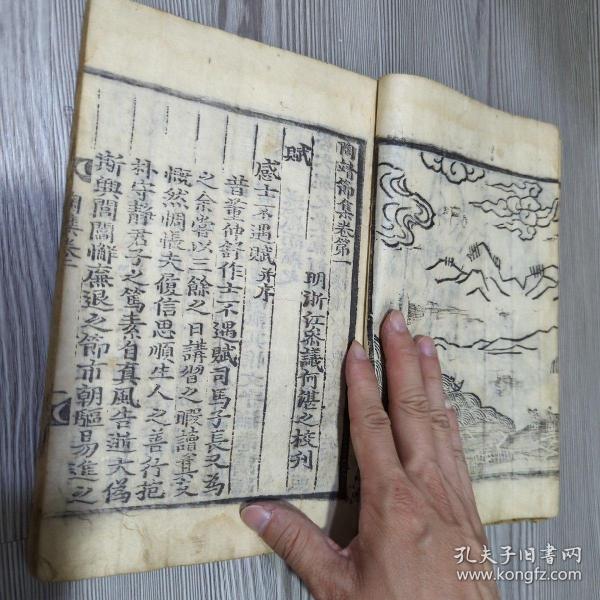 陶靖節集卷第一
明浙江參議何湛之校刋
賦
感士不遇賦并序
昔董仲舒作士不遇賦司馬子長又為
之余嘗以三餘之日講習之暇讀其文
慨然惆悵夫履信思順生人之善行抱
朴守靜君子之篤素自真風告逝大僞
斯興閭閻懈廉退之節市朝驅易進之
孔夫子旧書网
www.kongfz.com